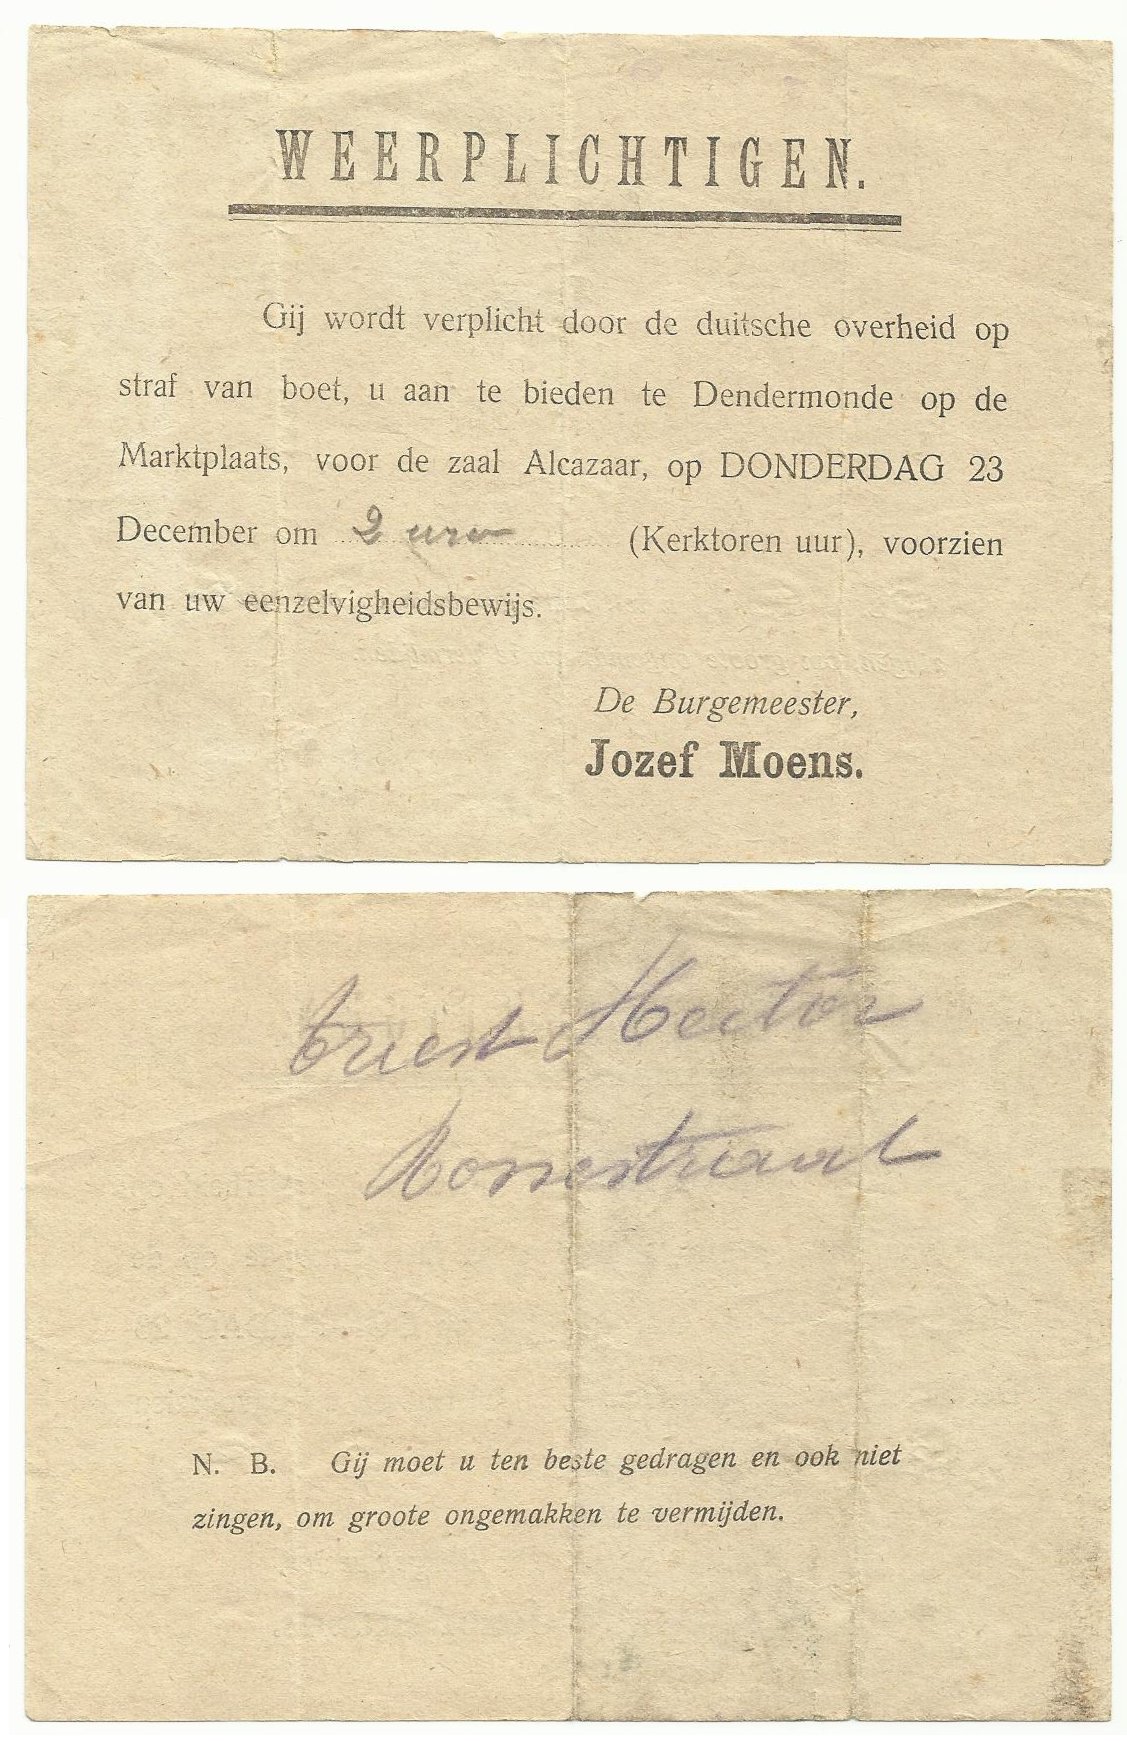 WEERPLICHTIGEN.
Gij wordt verplicht door de duitsche overheid op
straf van boet, u aan te bieden te Dendermonde op de
Marktplaats, voor de zaal Alcazaar, op DONDERDAG 23
December om 2 ure (Kerktoren uur), voorzien
van uw eenzelvigheidsbewijs.
De Burgemeester,
Jozef Moens.
Triest Hector
N. B. Gij moet u ten beste gedragen en ook niet
zingen, om groote ongemakken te vermijden.